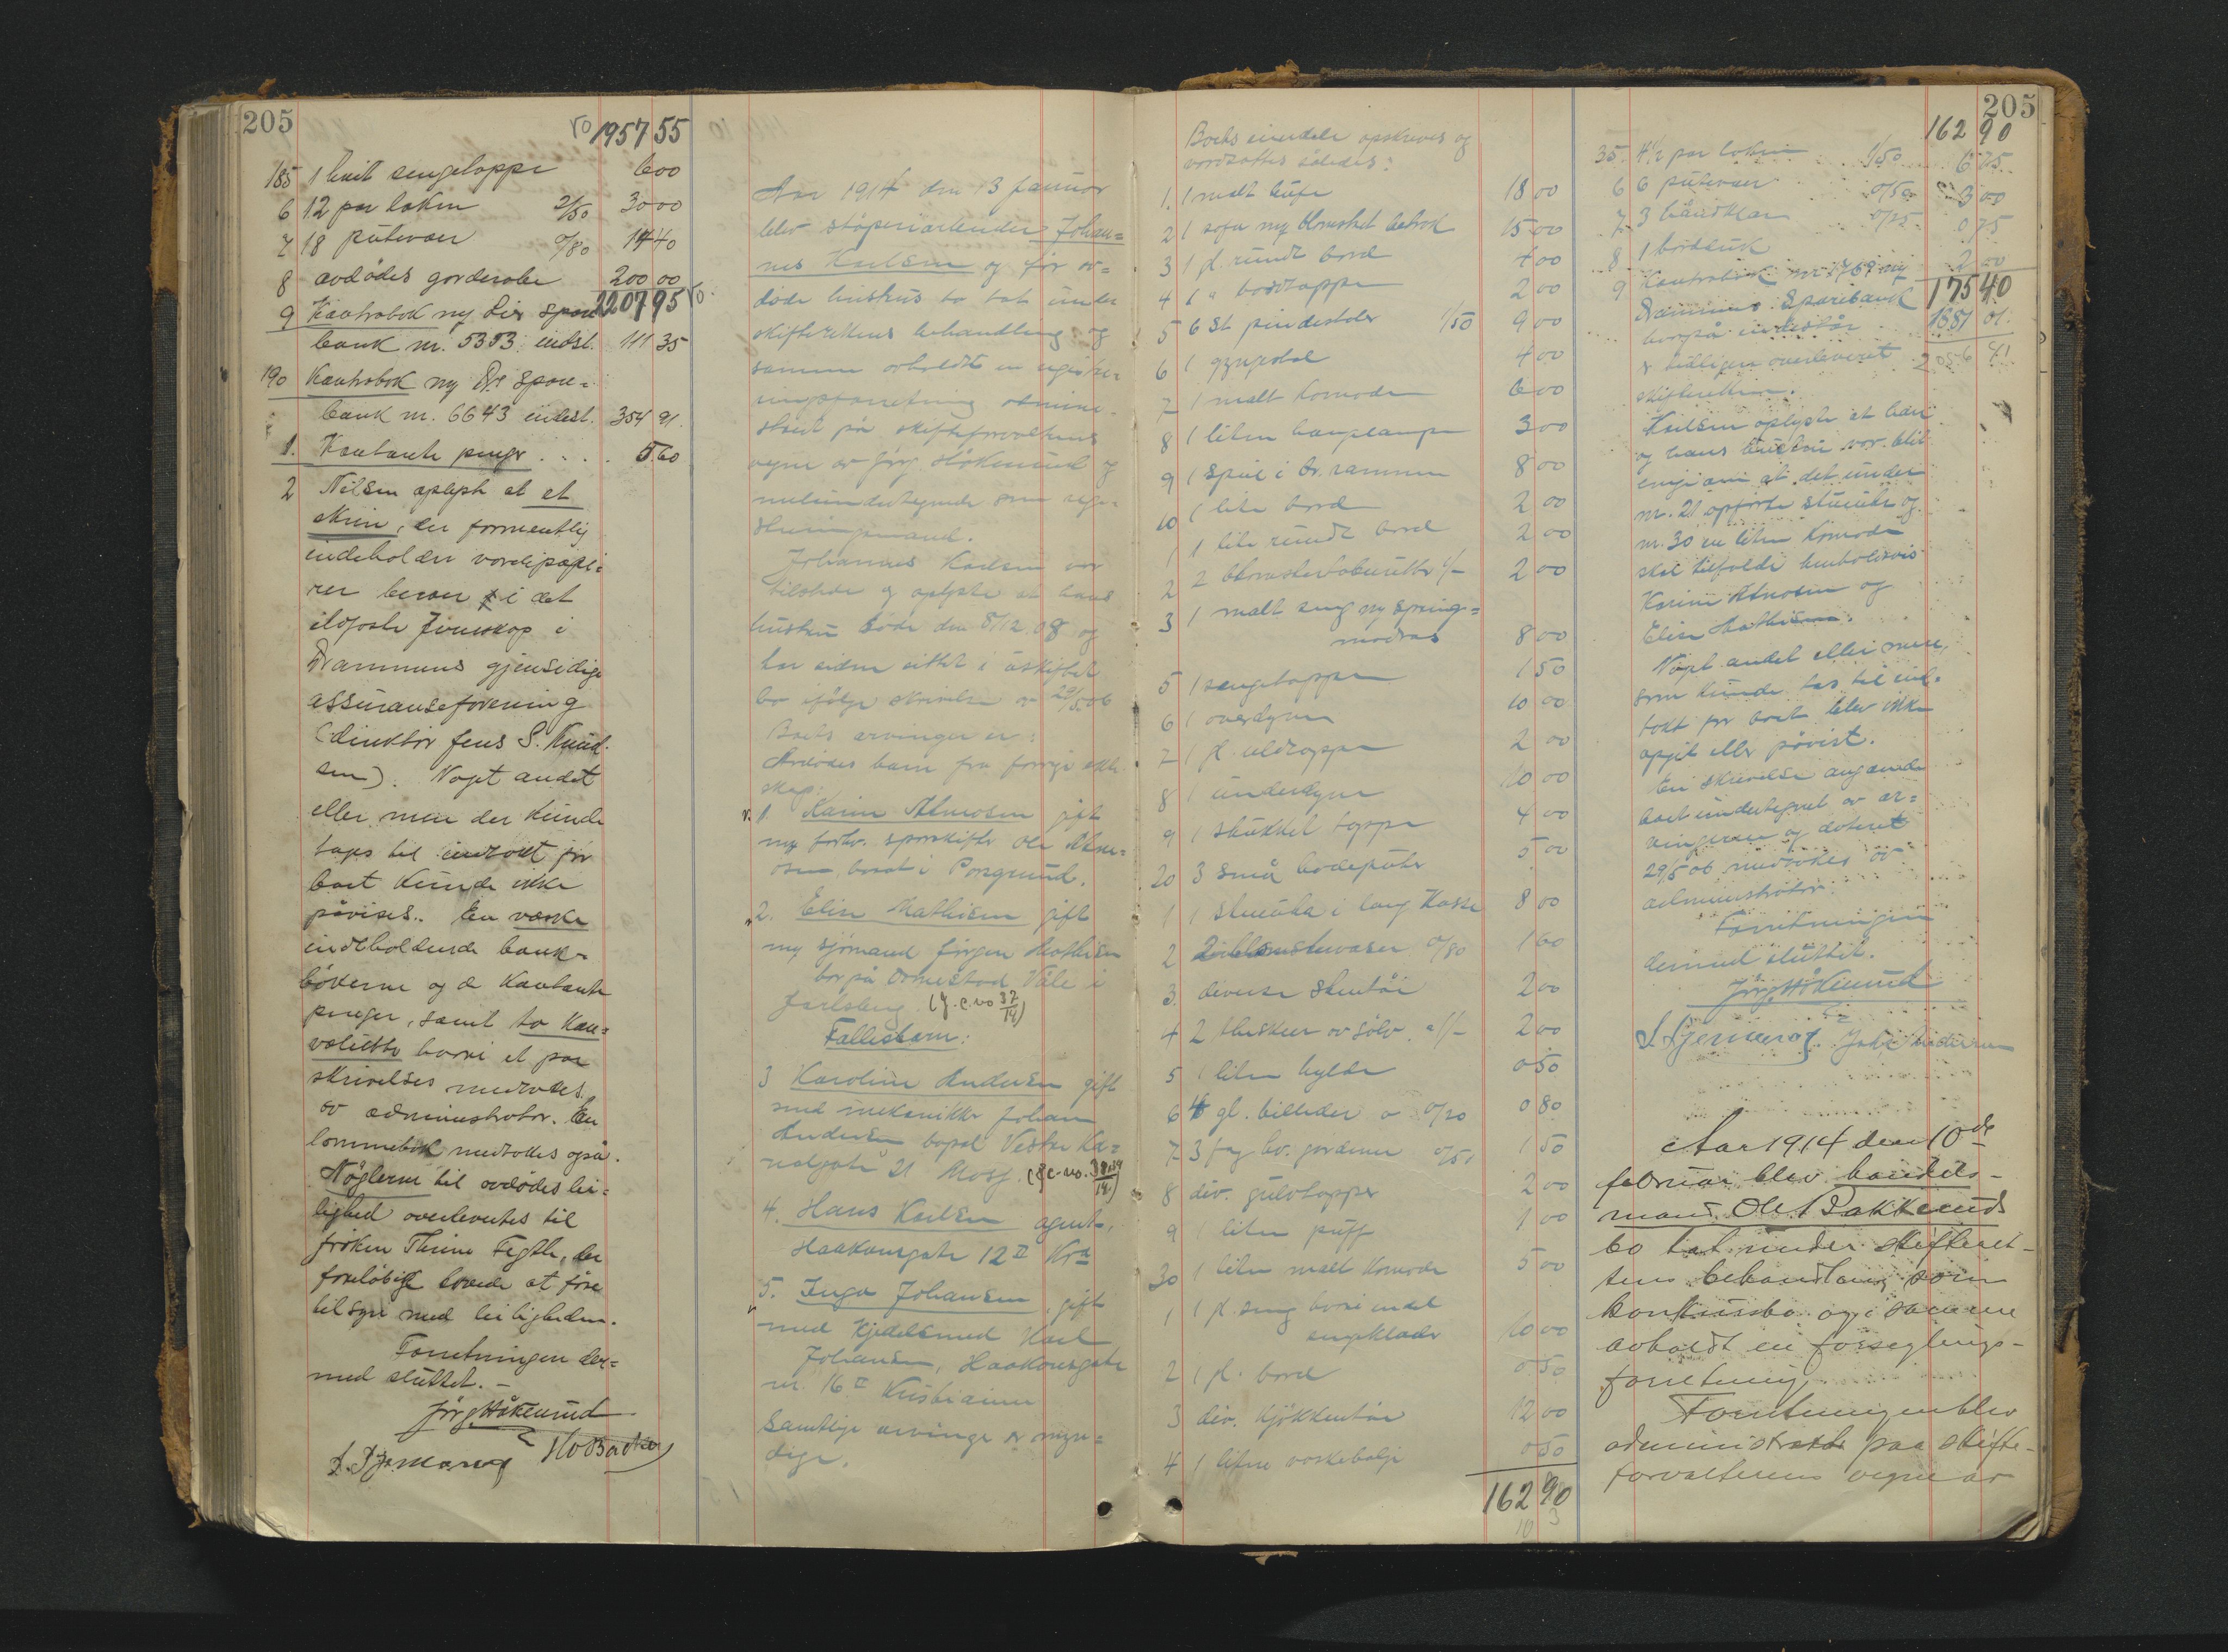 205
ro 1957 55
185 1 hvit sengetæppe 6 00
6 12 par laken 2/50 30 00
7 18 putevaer 0/80 14 40
8 avdødes garderobe 200 00
2207 95 ro
9 Kontrabok ny Lier Spare
bank nr. 5353 indst. 111 35
190 Kontrabok ny Dr. Spare=
bank nr. 6643 indest. 354 91.
1. Kontante penger . . . . 5 60
2 Nilsen oplyste at et
skrin, der formentlig
indeholder værdipapi=
rer beror i det
ildfaste Jernskap i
Drammens gjensidige
assuranseforening
(direktør Jens S. Knud-
sen). Noget andet
eller mere der kunde
tages til indtækt for
boet kunde ikke
påvises. En væske
indeholdende bank-
bökerne og de kontante
penger, samt to kon=
volutter hvori et par
skrivelser medtokes
av administrator. En
lommebok medtokes også.
Nöglerne til avdödes lei=
lighed overlevertes til
fröken Thrine Fegth, der
foreløbig lovede at före
tilsyn med leiligheden.
Forretningen der=
med sluttet. –
Jörg. Håkenrud
Aar 1914 den 13 januar
blev støperiarbeider Johan=
nes Karlsen og før av=
døde hustrus bo tat under
skifterettens behandling og
samme avholdt en registre=
ringsforretning admini-
streret på skifteforvalterens
vegne av Jörg. Håkenrud og
medundertegnede som regi=
streringsmænd.
Johannes Karlsen var
tilstede og oplyste at hans
hustru døde den 8/12 08 og
har siden sittet i uskiftet
bo ifølge skrivelse av 29/5 06
Boets arvinger er:
Avdødes barn fra forrige ekte
skap:
1. Karin Asmosen gift
bosat i Porsgrund.
2. Elise Mathisen gift
ny sjömand Jörgen Mathisen
bor på Våle i
Jarlsberg. (J.C. no 37/14)
Fællesbarn:
3 Karoline Andersen gift
med mekaniker Johan
Andersen bopel Vestre Ka=
nalgate 21 Moss.
4. Hans Karlsen agent,
Haakonsgate 12 II Kra
5. Inga Johansen, gift
med Kjedelsmed Karl
Johansen, Haakonsgate
nr. 16 II Kristiania
Samtlige arvinge er myn=
dige.
Boets eiendele opskreves og
værdsattes således:
1. 1 malt bufe 18 00
2 1 sofa ny blomstret betræk 15 00
3 1 gl. rundt bord 4 00
4 1 " bordtæppe 2 00
5 6 st. pindestoler 1/50 9 00
6 1 gyngestol 4 00
7 1 malt komode 6 00
8 1 liten hængelampe 3 00
9 1 speil i br. ramme 8 00
10 1 lite bord 2 00
1 1 lite rundt bord 2 00
2 2 blomstertaburetter 1/– 2 00
3 1 malt seng ny spring=
madras 8 00
5 1 sengetæppe 1 50
6 1 overdyne 10 00
7 1 gl. uldtæppe 2 00
8 1 underdyne 10 00
9 1 strikket tæppe 4 00
20 3 små hodeputer 5 00
1 1 stueuhr i lang kasse 8 00
2 2 blomstervaser 0/80 1 60
3 diverse stentöi 2 00
4 2 theskeer av sölv a 1/– 2 00
5 1 liten hylde 0 50
6 4 gl. billeder a 0/20 0 80
7 3 fag hv. gardiner 0/50 1 50
8 div. gulvtepper 2 00
9 1 liten puff 1 00
30 1 liten malt komode 5 00
1 1 gl. seng hvori endel
sengklæder 10 00
2 1 gl. bord 0 50
3 div. kjökkentöi 12 00
4 1 liten vaskebalje 0 50
162 90
205
162 90
35. 4½ par laken 1/50 6 75
6 6 putevaer 0/50 3 00
7 3 håndklær 0/25 0 75
8 1 bordduk 2 00
175 40
9 Kontrabok nr. ny
Drammens Sparebank
hvorpå indestår 1881 01
er tidligere overleveret 2056 41
skifteretten.
Karlsen oplyste at han
og hans hustru var blit
enige om at det under
nr. 21 opførte stueuhr og
nr. 30 en liten komode
skal tilfalde henholdsvis
Karin Asmosen og
Elise Mathisen.
Noget andet eller mere,
som kunde tas til ind-
tækt for boet blev ikke
opgit eller påvist.
En skrivelse angaaende
boet undertegnet av ar=
vingerne og dateret
29/5 06 medtokes av
administrator.
Forretningen
dermed sluttet.
Jörg. Håkenrud
Aar 1914 den 10de
februar blev handels-
mand Ole Bakkeruds
bo tat under skifteret-
tens behandling som
konkursbo og i samme
avholdt en forseglings-
forretning.
Forretningen blev
administrert paa skifte-
forvalterens vegne av